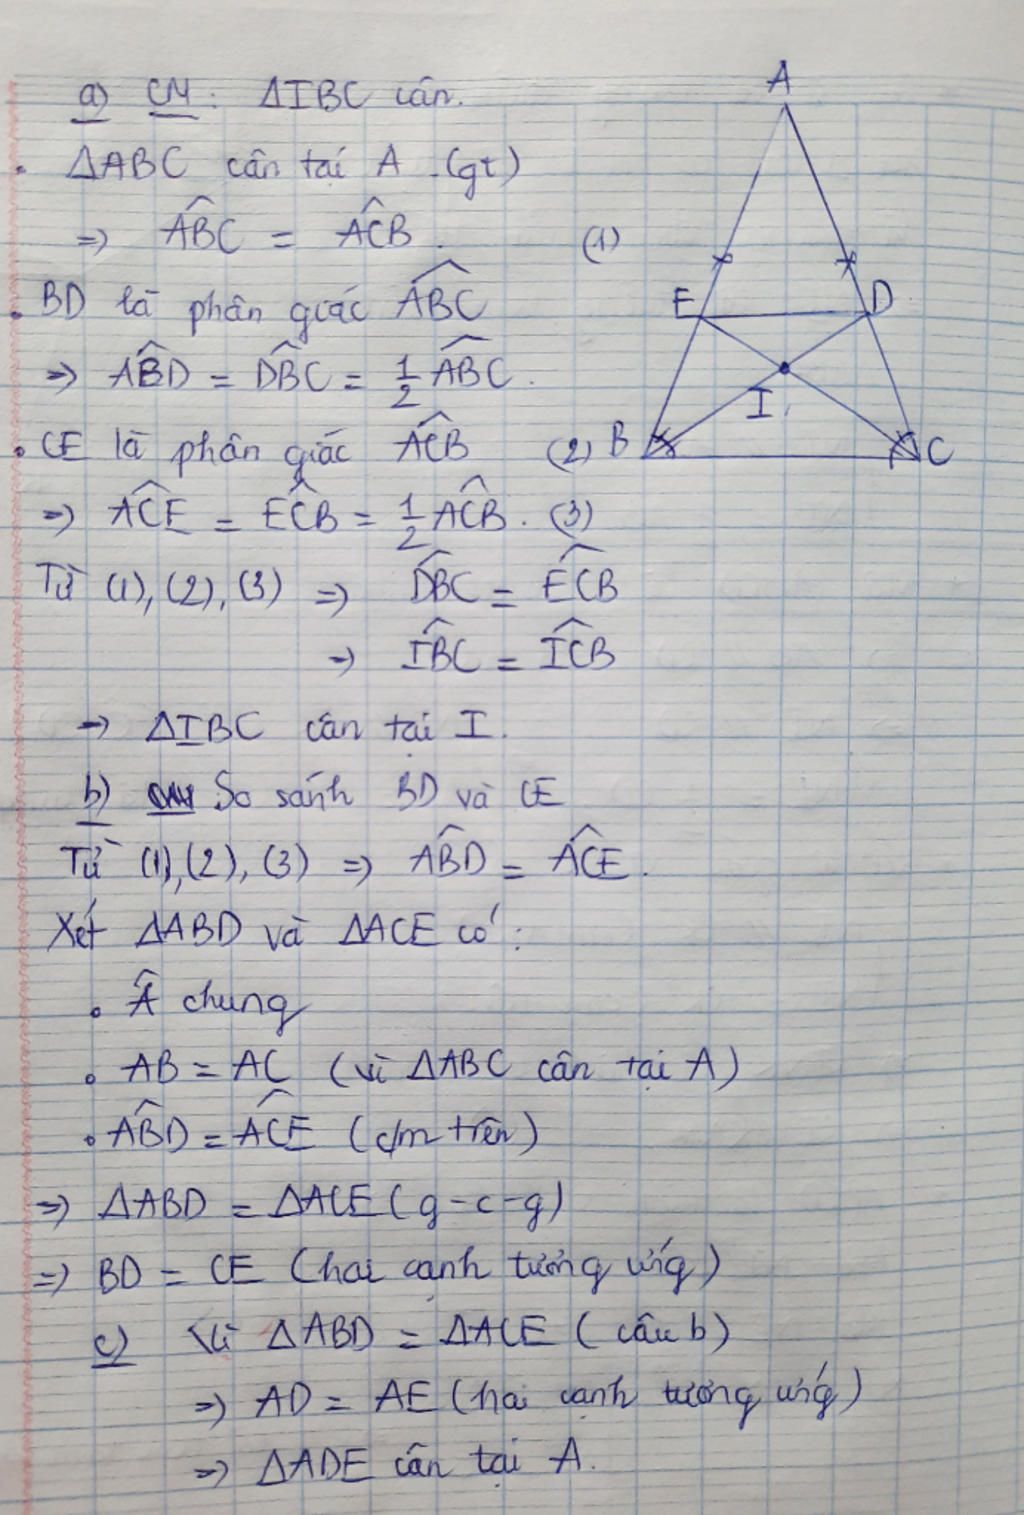 a) CM: ΔIBC cân.
• ΔABC cân tại A (gt)
⇒ ABĈ = AĈB. (1)
• BD là phân giác ABĈ
⇒ AB̂D = DB̂C = 1/2 AB̂C.
• CE là phân giác AĈB (2)
⇒ AĈE = EĈB = 1/2 AĈB. (3)
Từ (1), (2), (3) ⇒ DB̂C = EĈB
⇒ IB̂C = IĈB
⇒ ΔIBC cân tại I.
b) So sánh BD và CE
Từ (1), (2), (3) ⇒ AB̂D = AĈE.
Xét ΔABD và ΔACE có:
• Â chung
• AB = AC (vì ΔABC cân tại A)
• AB̂D = AĈE (c/m trên)
⇒ ΔABD = ΔACE (g-c-g)
⇒ BD = CE (hai cạnh tương ứng)
c) Vì ΔABD = ΔACE (câu b)
⇒ AD = AE (hai cạnh tương ứng)
⇒ ΔADE cân tại A.
A
E
D
I
B
C